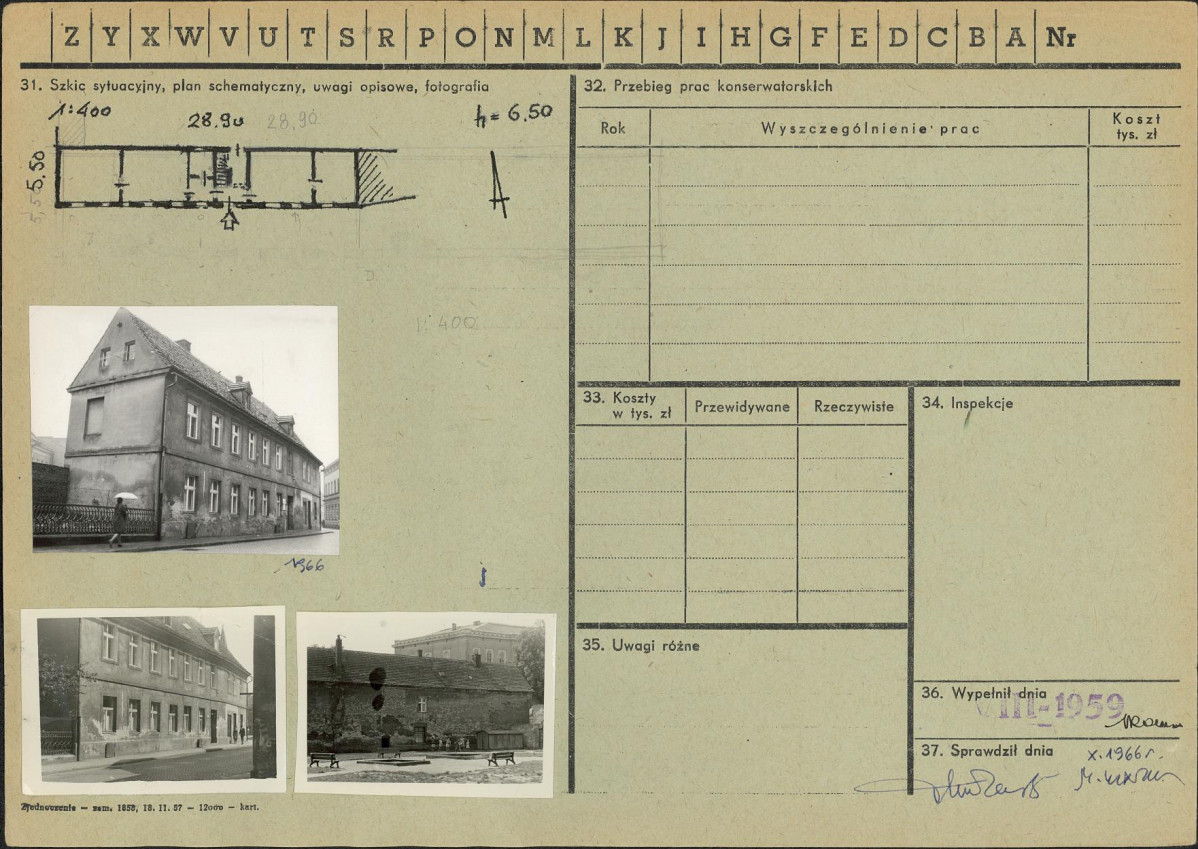 Z Y X W V U T S R P O N M L K J I H G F E D C B A Nr
31. Szkic sytuacyjny, plan schematyczny, uwagi opisowe, fotografia
1:400
28.90 28,90
h = 6.50
5.50
1:400
1966
Zjednoczenie — zam. 1858, 18. 11. 57 — 12000 — kart.
32. Przebieg prac konserwatorskich
Rok
Wyszczególnienie prac
Koszt
tys. zł
33. Koszty
w tys. zł
Przewidywane
Rzeczywiste
34. Inspekcje
35. Uwagi różne
36. Wypełnił dnia
III-1959
37. Sprawdził dnia
X.1966 r.